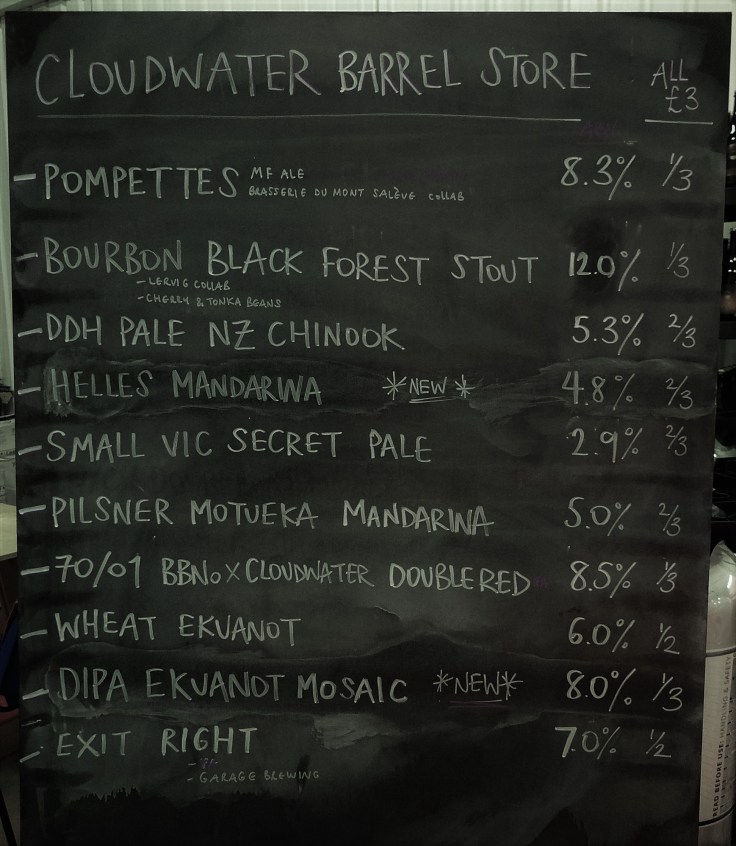 CLOUDWATER BARREL STORE ALL £3
- POMPETTES MF ALE 8.3% 1/3
BRASSERIE DU MONT SALÈVE COLLAB
- BOURBON BLACK FOREST STOUT 12.0% 1/3
- LERVIG COLLAB
- CHERRY & TONKA BEANS
- DDH PALE NZ CHINOOK 5.3% 2/3
- HELLES MANDARINA *NEW* 4.8% 2/3
- SMALL VIC SECRET PALE 2.9% 2/3
- PILSNER MOTUEKA MANDARINA 5.0% 2/3
- 70/01 BBNo X CLOUDWATER DOUBLE RED 8.5% 1/3
- WHEAT EKUANOT 6.0% 1/2
- DIPA EKUANOT MOSAIC *NEW* 8.0% 1/3
- EXIT RIGHT 7.0% 1/2
- GARAGE BREWING
READ BEFORE USE: HANDLING & SAFETY